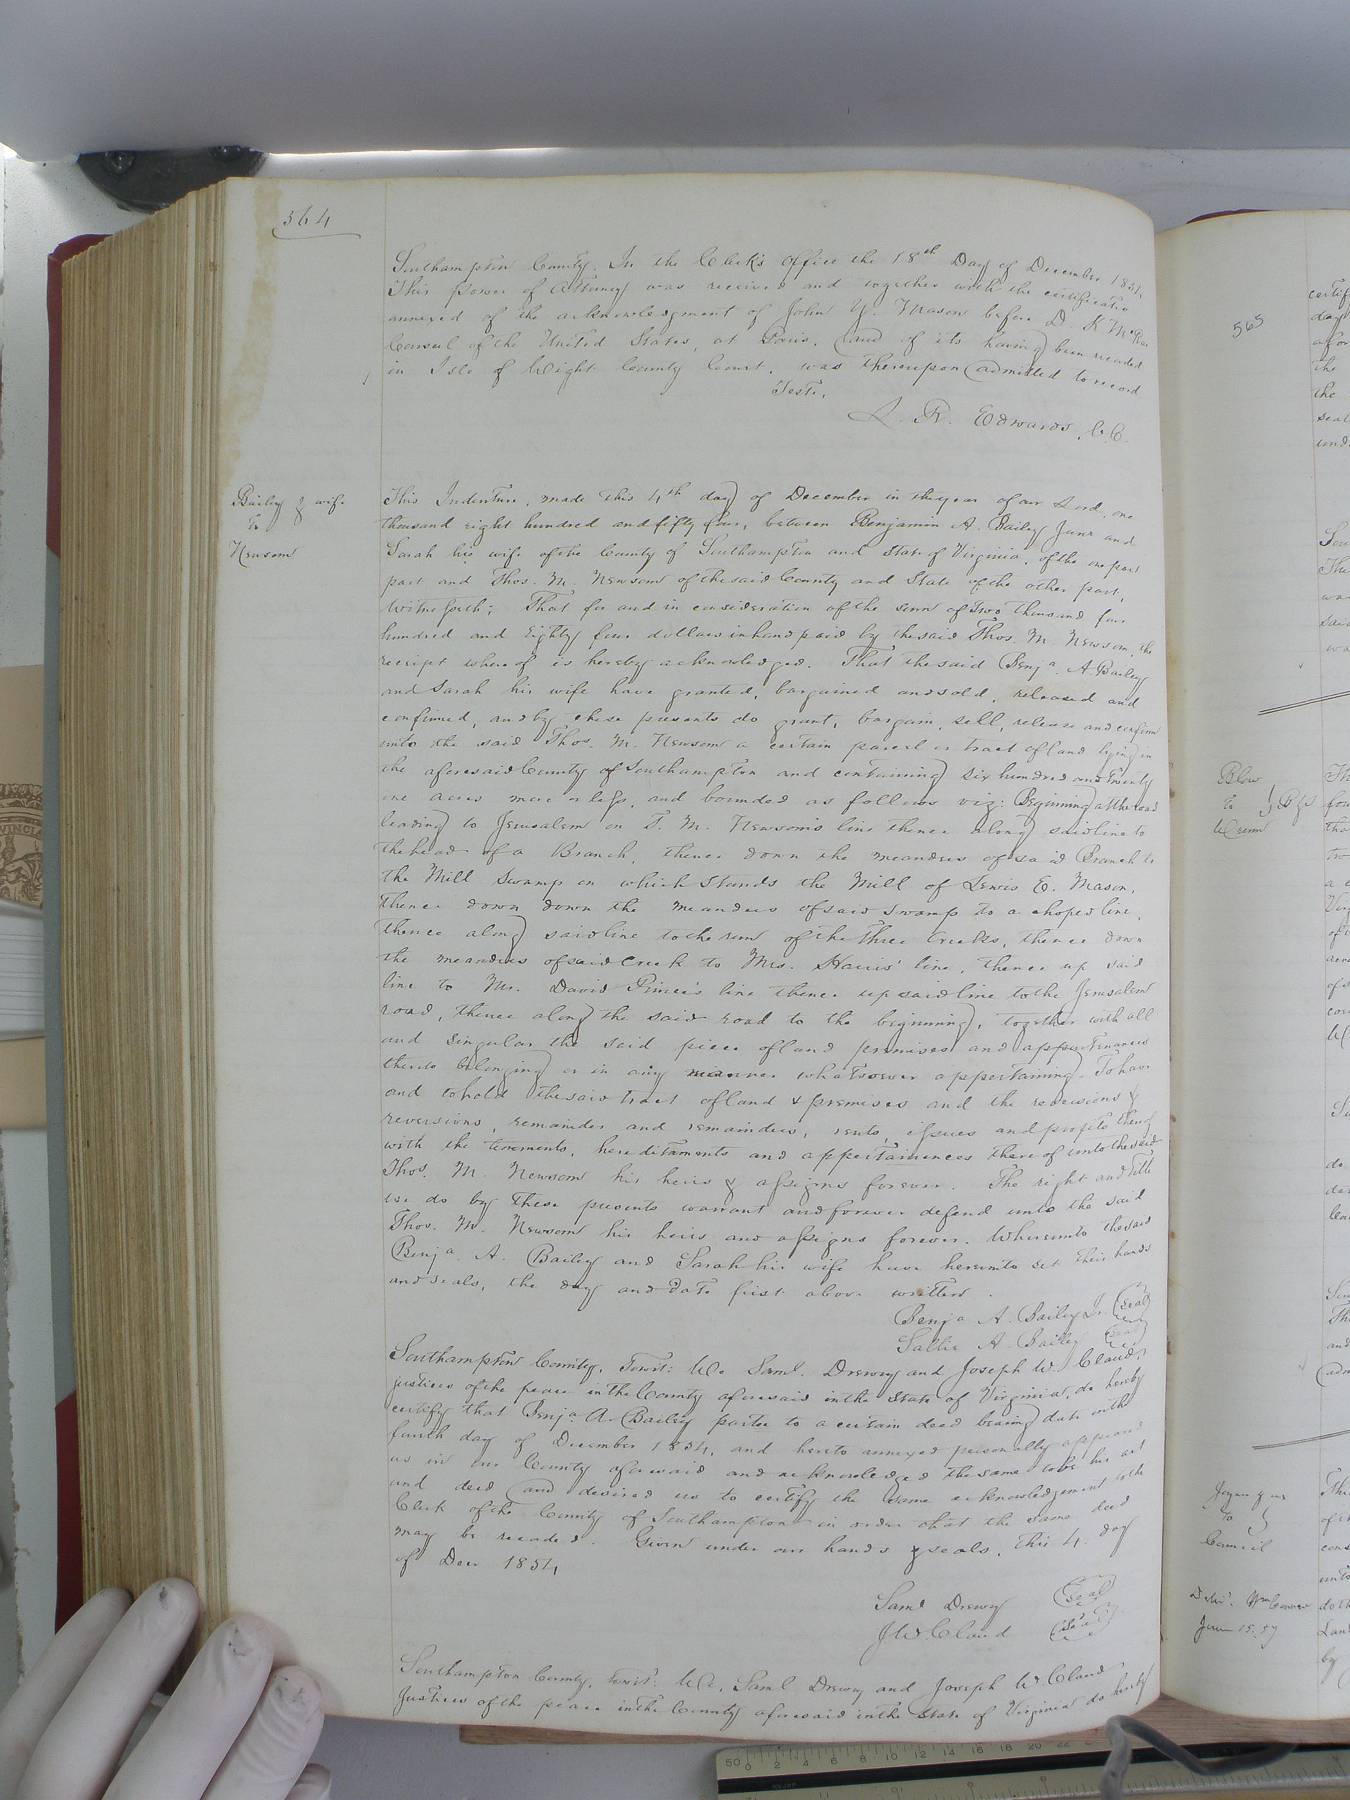 564
Southampton County. In the Clerk's Office the 18th Day of December 1854
This power of Attorney was received and together with the certificate
annexed of the acknowledgment of John Y. Mason before D. K McRae
Consul of the United States, at Paris, and of its having been recorded
in Isle of Wight County Court, was thereupon admitted to record
Teste,
L. R. Edwards, C.C.
Bailey & wife
to
Newsom
This Indenture, made this 4th day of December in the year of our Lord, one
thousand eight hundred and fifty four, between Benjamin A. Bailey Junr and
Sarah his wife of the County of Southampton and State of Virginia, of the one part
part and Thos. M. Newsom of the said County and State of the other part,
Witnesseth; That for and in consideration of the sum of Two thousand four
hundred and Eighty four dollars in hand paid by the said Thos. M. Newsom, the
receipt whereof is hereby acknowledged. That the said Benja. A Bailey
and Sarah his wife have granted, bargained and sold, released and
confirmed, and by these presents do grant, bargain, sell, release and confirm
unto the said Thos. M. Newsom a certain parcel or tract of land lying in
the aforesaid County of Southampton and containing six hundred and twenty
one acres more or less, and bounded as follows viz: Beginning at the road
leading to Jerusalem on T. M. Newsom's line thence along said line to
the head of a Branch, thence down the meanders of said Branch to
the Mill Swamp on which Stands the Mill of Lewis E. Mason,
thence down down the meanders of said swamp to a choped line,
thence along said line to the run of the Three Creeks, thence down
the meanders of said Creek to Mrs. Harris' line, thence up said
line to Mr. David Prince's line thence up said line to the Jerusalem
road, thence along the said road to the beginning, together with all
and singular the said piece of land premises and appurtenances
thereto belonging or in any manner whatsoever appertaining. To have
and to hold the said tract of land & premises and the reversions &
reversions, remainder and remainders, rents, issues and profits thereof
with the tenements, hereditaments and appertainences thereof unto the said
Thos. M. Newsom his heirs & assigns forever. The right and title
we do by these presents warrant and forever defend unto the said
Thos. M. Newsom his heirs and assigns forever. Whereunto the said
Benja. A. Bailey and Sarah his wife have hereunto set their hands
and seals, the day and date first above written.
Benja A. Bailey Jr. (seal)
Sallie A. Bailey (seal)
Southampton County, Towit: We Saml. Drewry and Joseph W. Claud,
justices of the peace in the County aforesaid in the State of Virginia, do hereby
certify that Benja. A. Bailey partee to a certain deed bearing date on the
fourth day of December 1854, and hereto annexed personally appeared
us in our County aforesaid and acknowledged the same to be his act
and deed and desired us to certify the same acknowledgement to the
Clerk of the County of Southampton in order that the same deed
may be recorded. Given under our hands & seals, this 4. day
of Decr 1854
Saml Drewry (seal)
J W. Claud (seal)
Southampton County, towit: We, Saml Drewry and Joseph W Claud
Justices of the peace in the County aforesaid in the State of Virginia do hereby
565
Blow
to
Joyner & wife
to
Council
June 15. 57